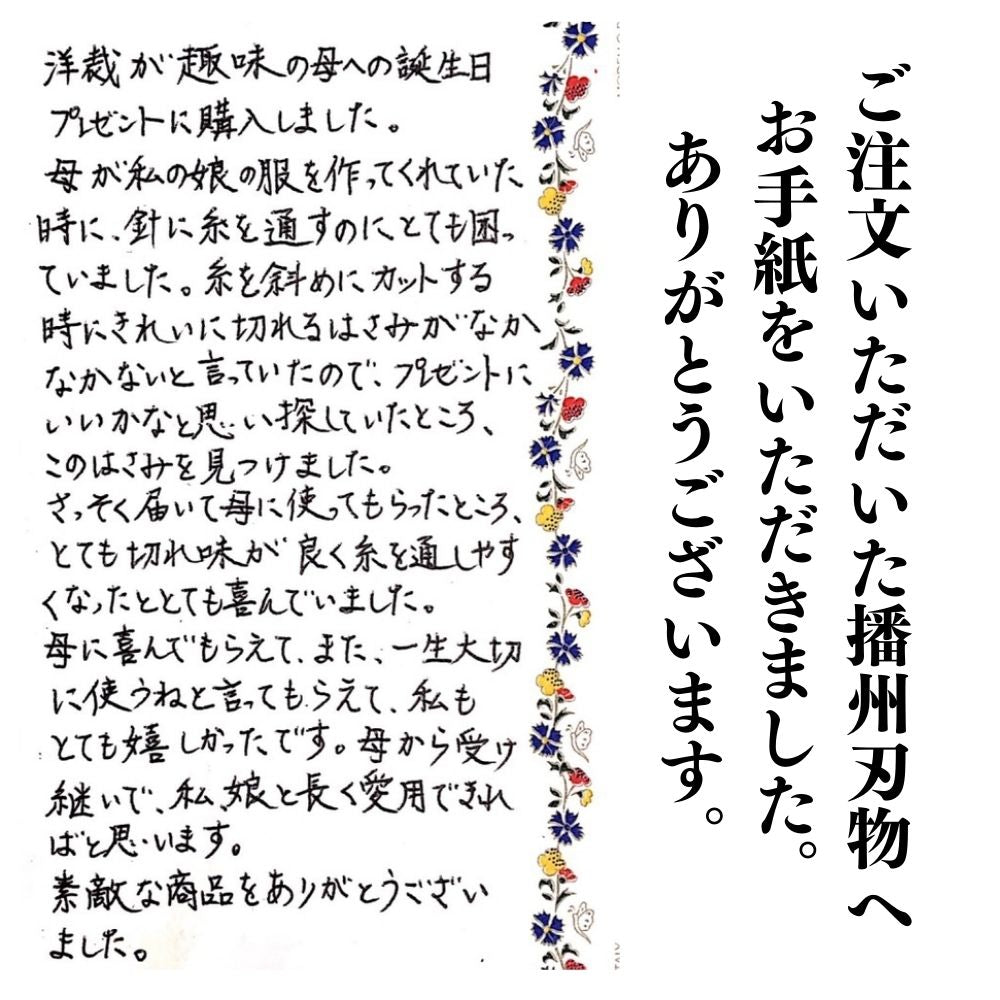 ご注文いただいた播州刃物へ
お手紙をいただきました。
ありがとうございます。
洋裁が趣味の母への誕生日
プレゼントに購入しました。
母が私の娘の服を作ってくれていた
時に、針に糸を通すのにとても困っ
ていました。糸を斜めにカットする
時にきれいに切れるはさみがなか
なかないと言っていたので、プレゼントに
いいかなと思い探していたところ、
このはさみを見つけました。
さっそく届いて母に使ってもらったところ、
とても切れ味が良く糸を通しやす
くなったととても喜んでいました。
母に喜んでもらえて、また、一生大切
に使うねと言ってもらえて、私も
とても嬉しかったです。母から受け
継いで、私、娘と長く愛用できれ
ばと思います。
素敵な商品をありがとうござい
ました。